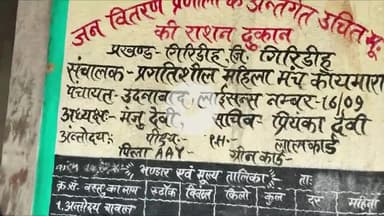 जन वितरण प्रणाली के अन्तर्गत उचित मूल्य
की राशन दुकान
प्रखण्ड- गिरिडीह, जि. गिरिडीह
संचालक- प्रगतिशील महिला मंच कायमारा
पंचायत- उदनाबाद लाईसेन्स नम्बर-16/09
अध्यक्ष- मंजु देवी सचिव- प्रियंका देवी
अंत्योदय: पीएच:- लालकार्ड
पिला AAY- ग्रीन कार्ड-
भण्डार एवं मूल्य तालिका ता:
क्र.सं. वस्तु का नाम स्टॉक वितरण किलो कुल दर
1. अन्तोदय चावल